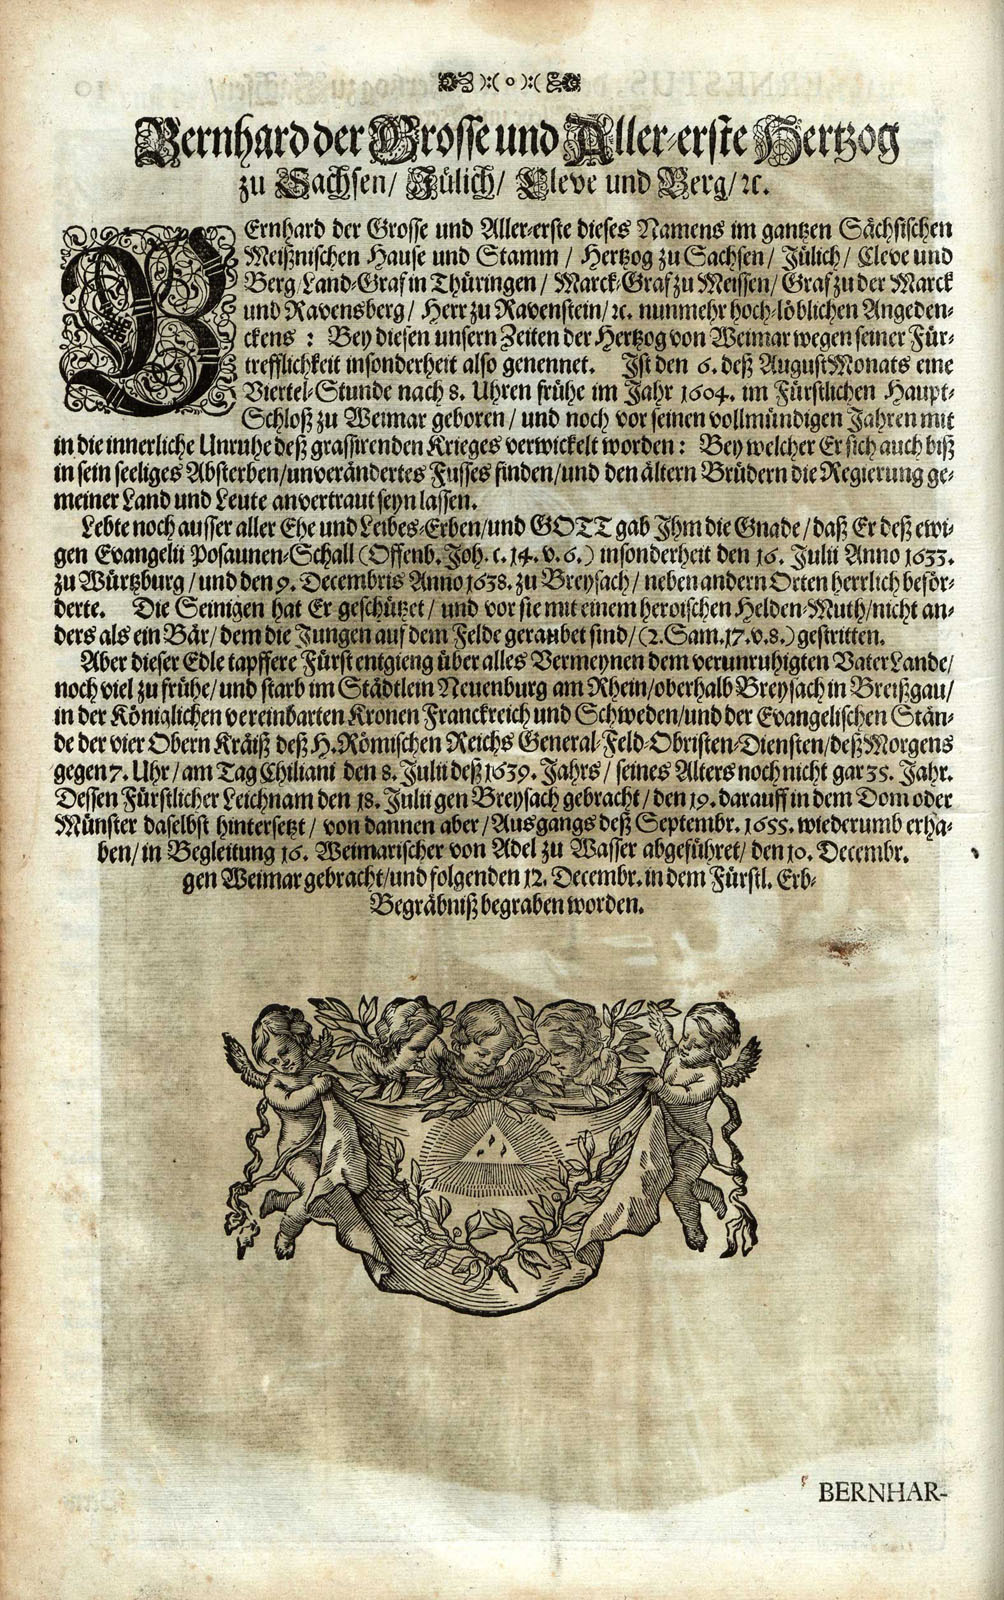 ):( o ):(
Bernhard der Grosse und Aller-erste Hertzog
zu Sachsen/ Jülich/ Cleve und Berg/ ꝛc.
BErnhard der Grosse und Aller-erste dieses Namens im gantzen Sächsischen
Meißnischen Hause und Stamm / Hertzog zu Sachsen/ Jülich/ Cleve und
Berg/ Land-Graf in Thüringen / Marck-Graf zu Meissen/ Graf zu der Marck
und Ravensberg/ Herr zu Ravenstein/ ꝛc. nunmehr hoch-löblichen Angeden-
ckens : Bey diesen unsern Zeiten der Hertzog von Weimar wegen seiner Für-
trefflichkeit insonderheit also genennet. Ist den 6. deß AugustMonats eine
Viertel-Stunde nach 8. Uhren frühe im Jahr 1604. im Fürstlichen Haupt-
Schloß zu Weimar geboren/ und noch vor seinen vollmündigen Jahren mit
in die innerliche Unruhe deß grassirenden Krieges verwickelt worden: Bey welcher Er sich auch biß
in sein seeliges Absterben/unverändertes Fusses finden/und den ältern Brüdern die Regierung ge-
meiner Land und Leute anvertraut seyn lassen.
Lebte noch ausser aller Ehe und Leibes-Erben/und GOTT gab Ihm die Gnade/ daß Er deß ewi-
gen Evangelii Posaunen-Schall (Offenb. Joh. c. 14. v. 6.) insonderheit den 16. Julii Anno 1633.
zu Würtzburg/ und den 9. Decembris Anno 1638. zu Breysach/ neben andern Orten herrlich beför-
derte. Die Seinigen hat Er geschützet/ und vor sie mit einem heroischen Helden-Muth/nicht an-
ders als ein Bär/ dem die Jungen auf dem Felde geraubet sind/ (2. Sam. 17. v. 8.) gestritten.
Aber dieser Edle tapffere Fürst entgieng über alles Vermeynen dem verunruhigten VaterLande/
noch viel zu frühe/ und starb im Städtlein Neuenburg am Rhein/oberhalb Breysach in Breißgau/
in der Königlichen vereinbarten Kronen Franckreich und Schweden/und der Evangelischen Stän-
de der vier Obern Kräiß deß H. Römischen Reichs General-Feld-Obristen-Diensten/deß Morgens
gegen 7. Uhr/ am Tag Chiliani den 8. Julii deß 1639. Jahrs/ seines Alters noch nicht gar 35. Jahr.
Dessen Fürstlicher Leichnam den 18. Julii gen Breysach gebracht/ den 19. darauff in dem Dom oder
Münster daselbst hintersetzt/ von dannen aber/ Ausgangs deß Septembr. 1655. wiederumb erha-
ben/ in Begleitung 16. Weimarischer von Adel zu Wasser abgeführet/ den 10. Decembr.
gen Weimar gebracht/und folgenden 12. Decembr. in dem Fürstl. Erb-
Begräbniß begraben worden.
BERNHAR-